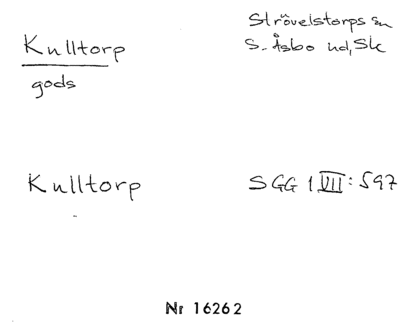 Kulltorp
gods
Strövelstorps sn
S. Åsbo hd, Sk
Kulltorp
SGG 1 VII: 597
Nr 16262